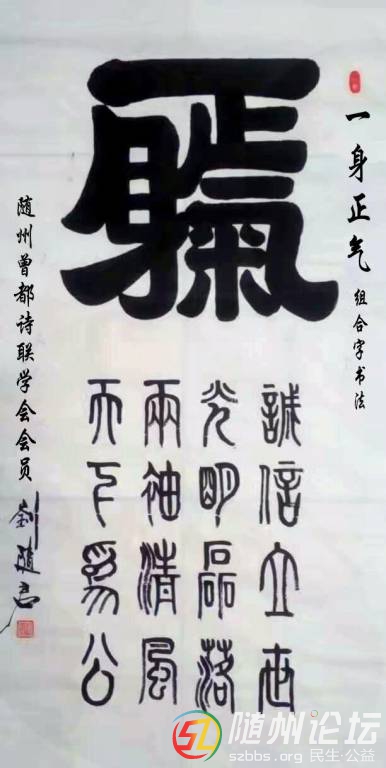 一身正气 组合字书法
誠信立世
光明磊落
兩袖清風
天下爲公
随州曾都诗联学会会员
劉随
随州论坛
szbbs.org 民生·公益